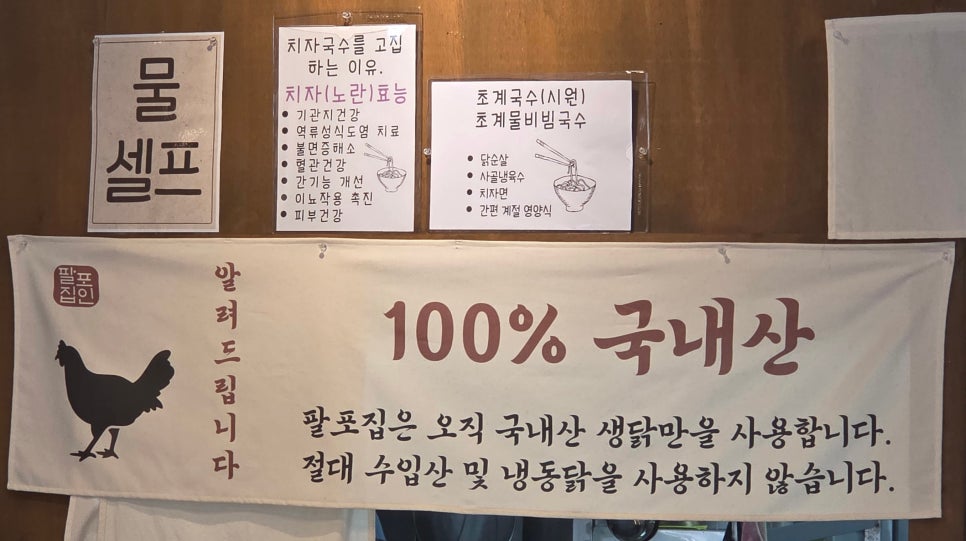 물
셀프
치자국수를 고집
하는 이유.
치자(노란)효능
• 기관지건강
• 역류성식도염 치료
• 불면증해소
• 혈관건강
• 간기능 개선
• 이뇨작용 촉진
• 피부건강
초계국수(시원)
초계물비빔국수
• 닭순살
• 사골냉육수
• 치자면
• 간편 계절 영양식
팔포
집인
알려드립니다
100% 국내산
팔포집은 오직 국내산 생닭만을 사용합니다.
절대 수입산 및 냉동닭을 사용하지 않습니다.